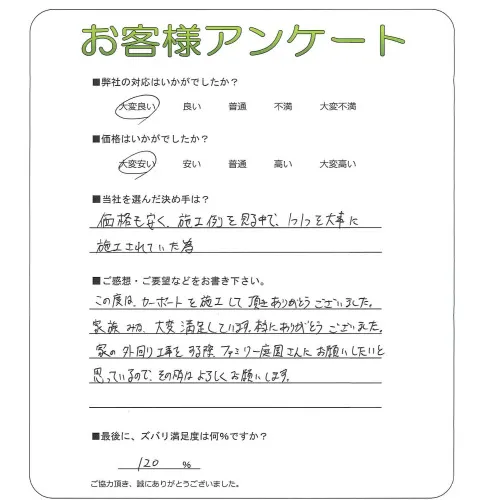 お客様アンケート
■弊社の対応はいかがでしたか?
大変良い 良い 普通 不満 大変不満
■価格はいかがでしたか?
大変安い 安い 普通 高い 大変高い
■当社を選んだ決め手は?
価格も安く、施工例を見る中で、1つ1つを大事に
施工されていた為
■ご感想・ご要望などをお書き下さい。
この度は、カーポートを施工して頂きありがとうございました。
家族みな、大変満足しています。本当にありがとうございました。
家の外回り工事をする際ファミリー庭園さんにお願いしたいと
思っているので、その時はよろしくお願いします。
■最後に、ズバリ満足度は何%ですか?
120 %
ご協力頂き、誠にありがとうございました。